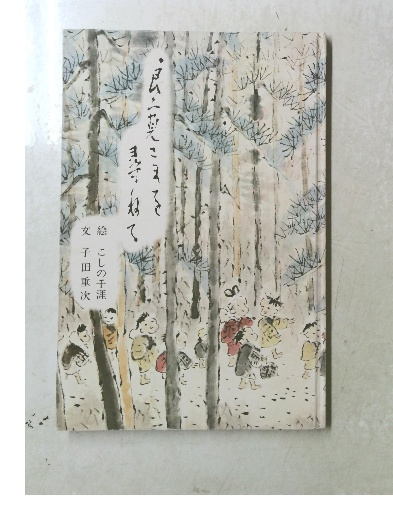 良寛さまを
尋ねて
絵 こしの千涯
文 子田重次